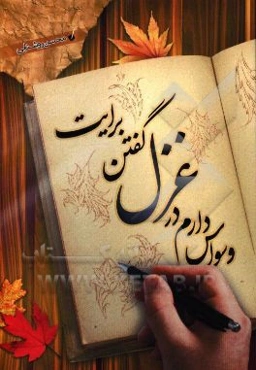 وسواس دارم در
غزل
گفتن
برایت
WWW.KETAB.IR